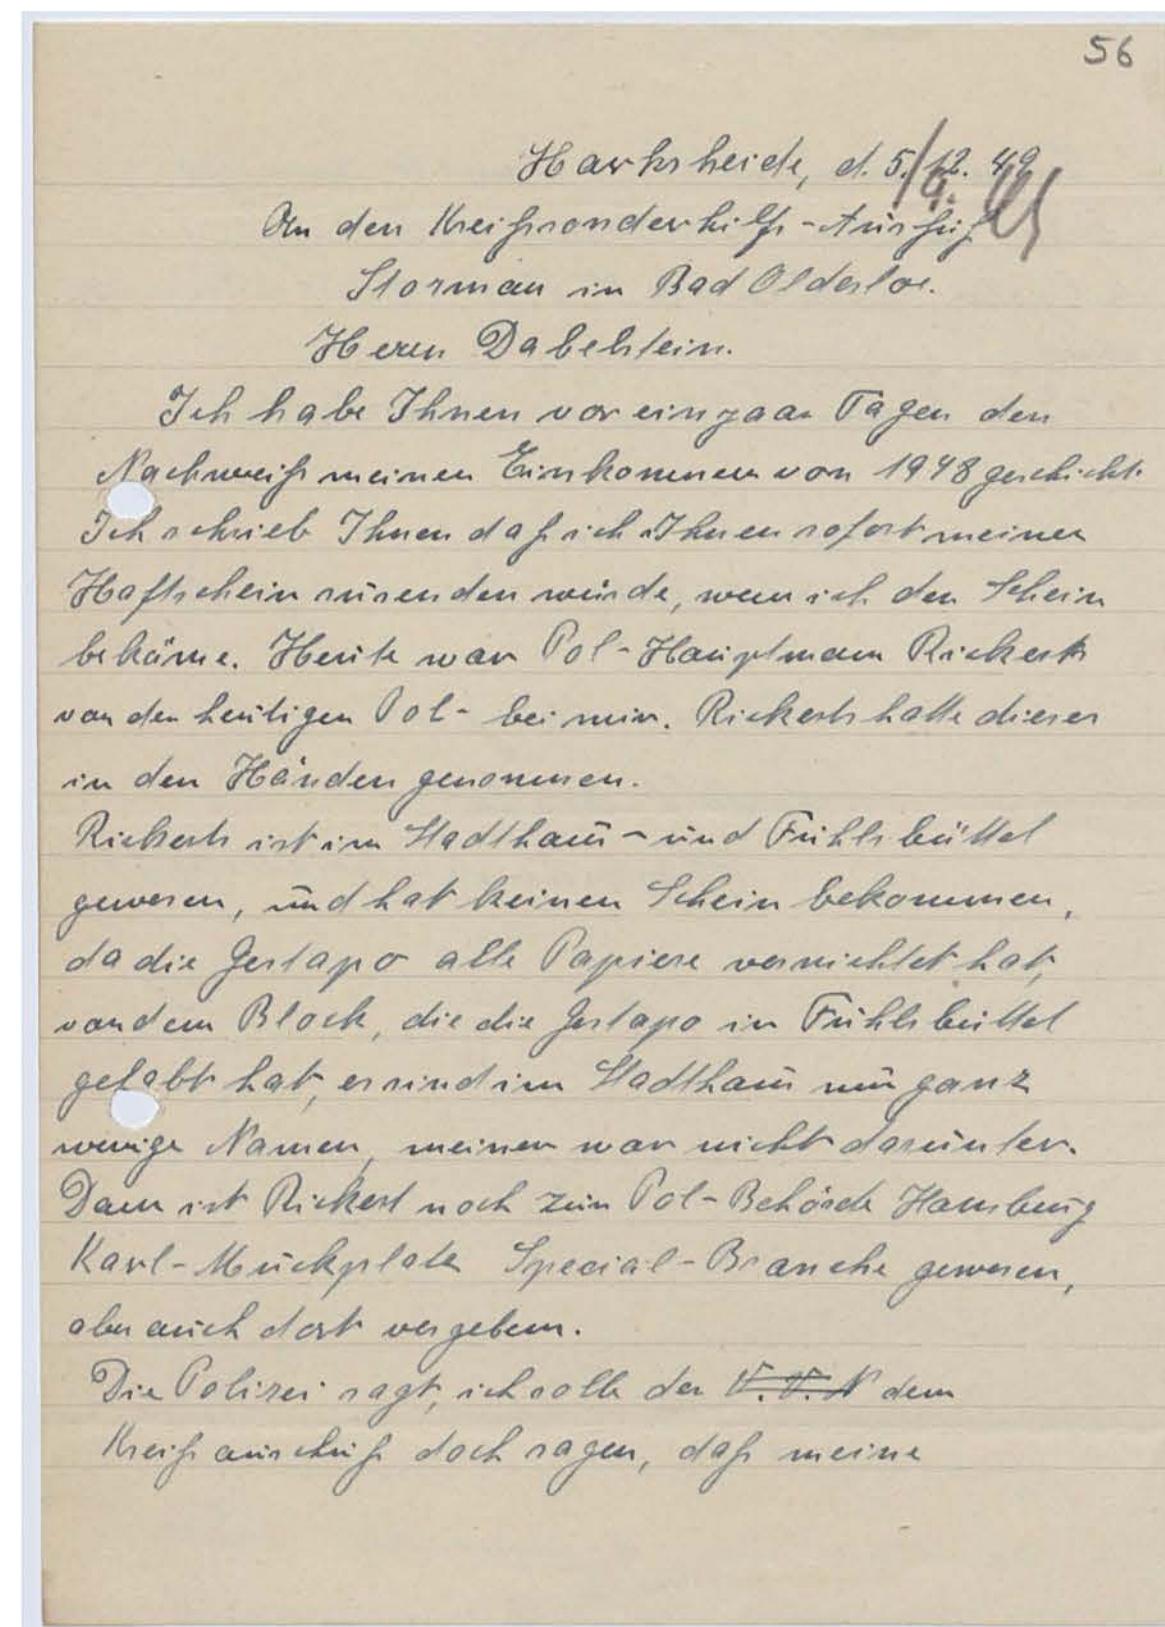 56
Harksheide, d. 5. 12. 49
An den Kreißsonderhilfs-Ausschuß
Storman in Bad Oldesloe.
Herrn Dabelstein.
Ich habe Ihnen vor ein paar Tagen den
Nachweiß meinen Einkommen von 1948 geschickt.
Ich schrieb Ihnen daß ich Ihnen sofort meinen
Haftschein zusenden würde, wenn ich den Schein
bekäme. Heute war Pol-Hauptmann Rickerts
von der heutigen Pol- bei mir. Rickerts hatte dieses
in den Händen genommen.
Rickerts ist im Stadthaus - und Fuhlsbüttel
gewesen, und hat keinen Schein bekommen,
da die Gestapo alle Papiere vernichtet hat,
von dem Block, die die Gestapo in Fuhlsbüttel
gehabt hat, es sind im Stadthaus nur ganz
wenige Namen, meiner war nicht darunter.
Dann ist Rickert noch zur Pol-Behörde Hamburg
Karl-Muckplatz Special-Branche gewesen,
aber auch dort vergebens.
Die Polizei sagt, ich solle der V.V.N dem
Kreißausschuß doch sagen, daß meine